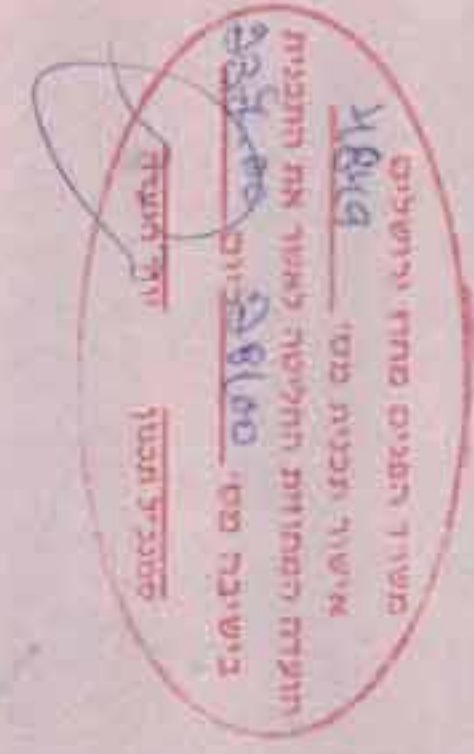 משרד הפנים מחוז ירושלים
אישור תכנית מס'
הועדה המחוזית החליטה לאשר את התכנית
בישיבה מס' ביום
סמנכ"ל תכנון יו"ר הועדה